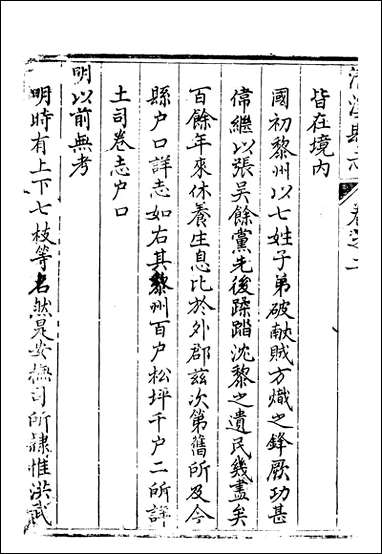 清溪縣志 卷之二
皆在境内
國初黎州以七姓子弟破献賊方熾之鋒厥功甚
偉繼以張吳餘黨先後蹂踏沈黎之遺民幾盡矣
百餘年來休養生息比於外郡茲次第舊所及今
縣户口詳志如右其黎州百户松坪千户二所詳
土司卷志户口
明以前無考
明時有上下七枝等名然是安撫司所隸惟洪武